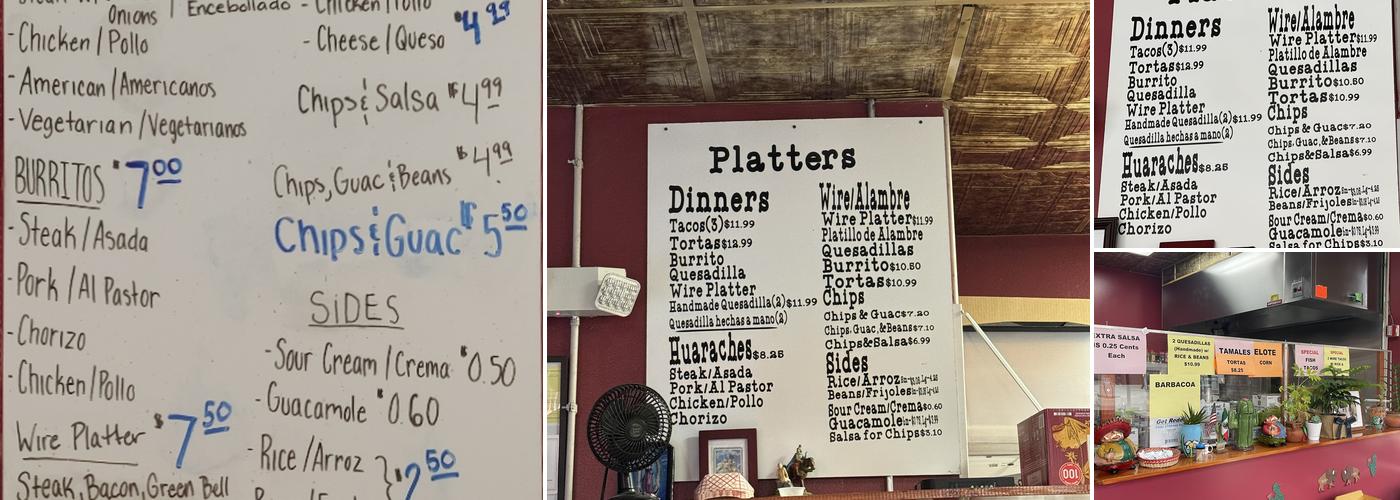 Onions / Encebollado
- Chicken / Pollo
- American / Americanos
- Vegetarian / Vegetarianos
BURRITOS $7.00
- Steak / Asada
- Pork / Al Pastor
- Chorizo
- Chicken / Pollo
Wire Platter $7.50
Steak, Bacon, Green Bell
- Chicken / Pollo $4.99
- Cheese / Queso
Chips & Salsa $4.99
Chips, Guac & Beans $4.99
Chips & Guac $5.50
SIDES
- Sour Cream / Crema $0.50
- Guacamole $0.60
- Rice / Arroz } $2.50
Platters
Dinners
Tacos(3)$11.99
Tortas$12.99
Burrito
Quesadilla
Wire Platter
Handmade Quesadilla(2)$11.99
Quesadilla hechas a mano(2)
Huaraches$8.25
Steak/Asada
Pork/Al Pastor
Chicken/Pollo
Chorizo
Wire/Alambre
Wire Platter$11.99
Platillo de Alambre
Quesadillas
Burrito$10.50
Tortas$10.99
Chips
Chips & Guac$7.20
Chips, Guac, &Beans$7.10
Chips&Salsa$6.99
Sides
Rice/Arroz
Beans/Frijoles
Sour Cream/Crema$0.60
Guacamole
Salsa for Chips$3.10
100
Dinners
Tacos(3)$11.99
Tortas$12.99
Burrito
Quesadilla
Wire Platter
Handmade Quesadilla(2)$11.99
Quesadilla hechas a mano(2)
Huaraches$8.25
Steak/Asada
Pork/Al Pastor
Chicken/Pollo
Chorizo
Wire/Alambre
Wire Platter$11.99
Platillo de Alambre
Quesadillas
Burrito$10.50
Tortas$10.99
Chips
Chips & Guac$7.20
Chips, Guac, &Beans$7.10
Chips&Salsa$6.99
Sides
Rice/Arroz
Beans/Frijoles
Sour Cream/Crema$0.60
Guacamole
Salsa for Chips$3.10
EXTRA SALSA
IS 0.25 Cents
Each
2 QUESADILLAS
(Handmade) w/
RICE & BEANS
$10.99
BARBACOA
TAMALES
TORTAS
$8.25
ELOTE
CORN
SPECIAL
FISH
TACOS
SPECIAL